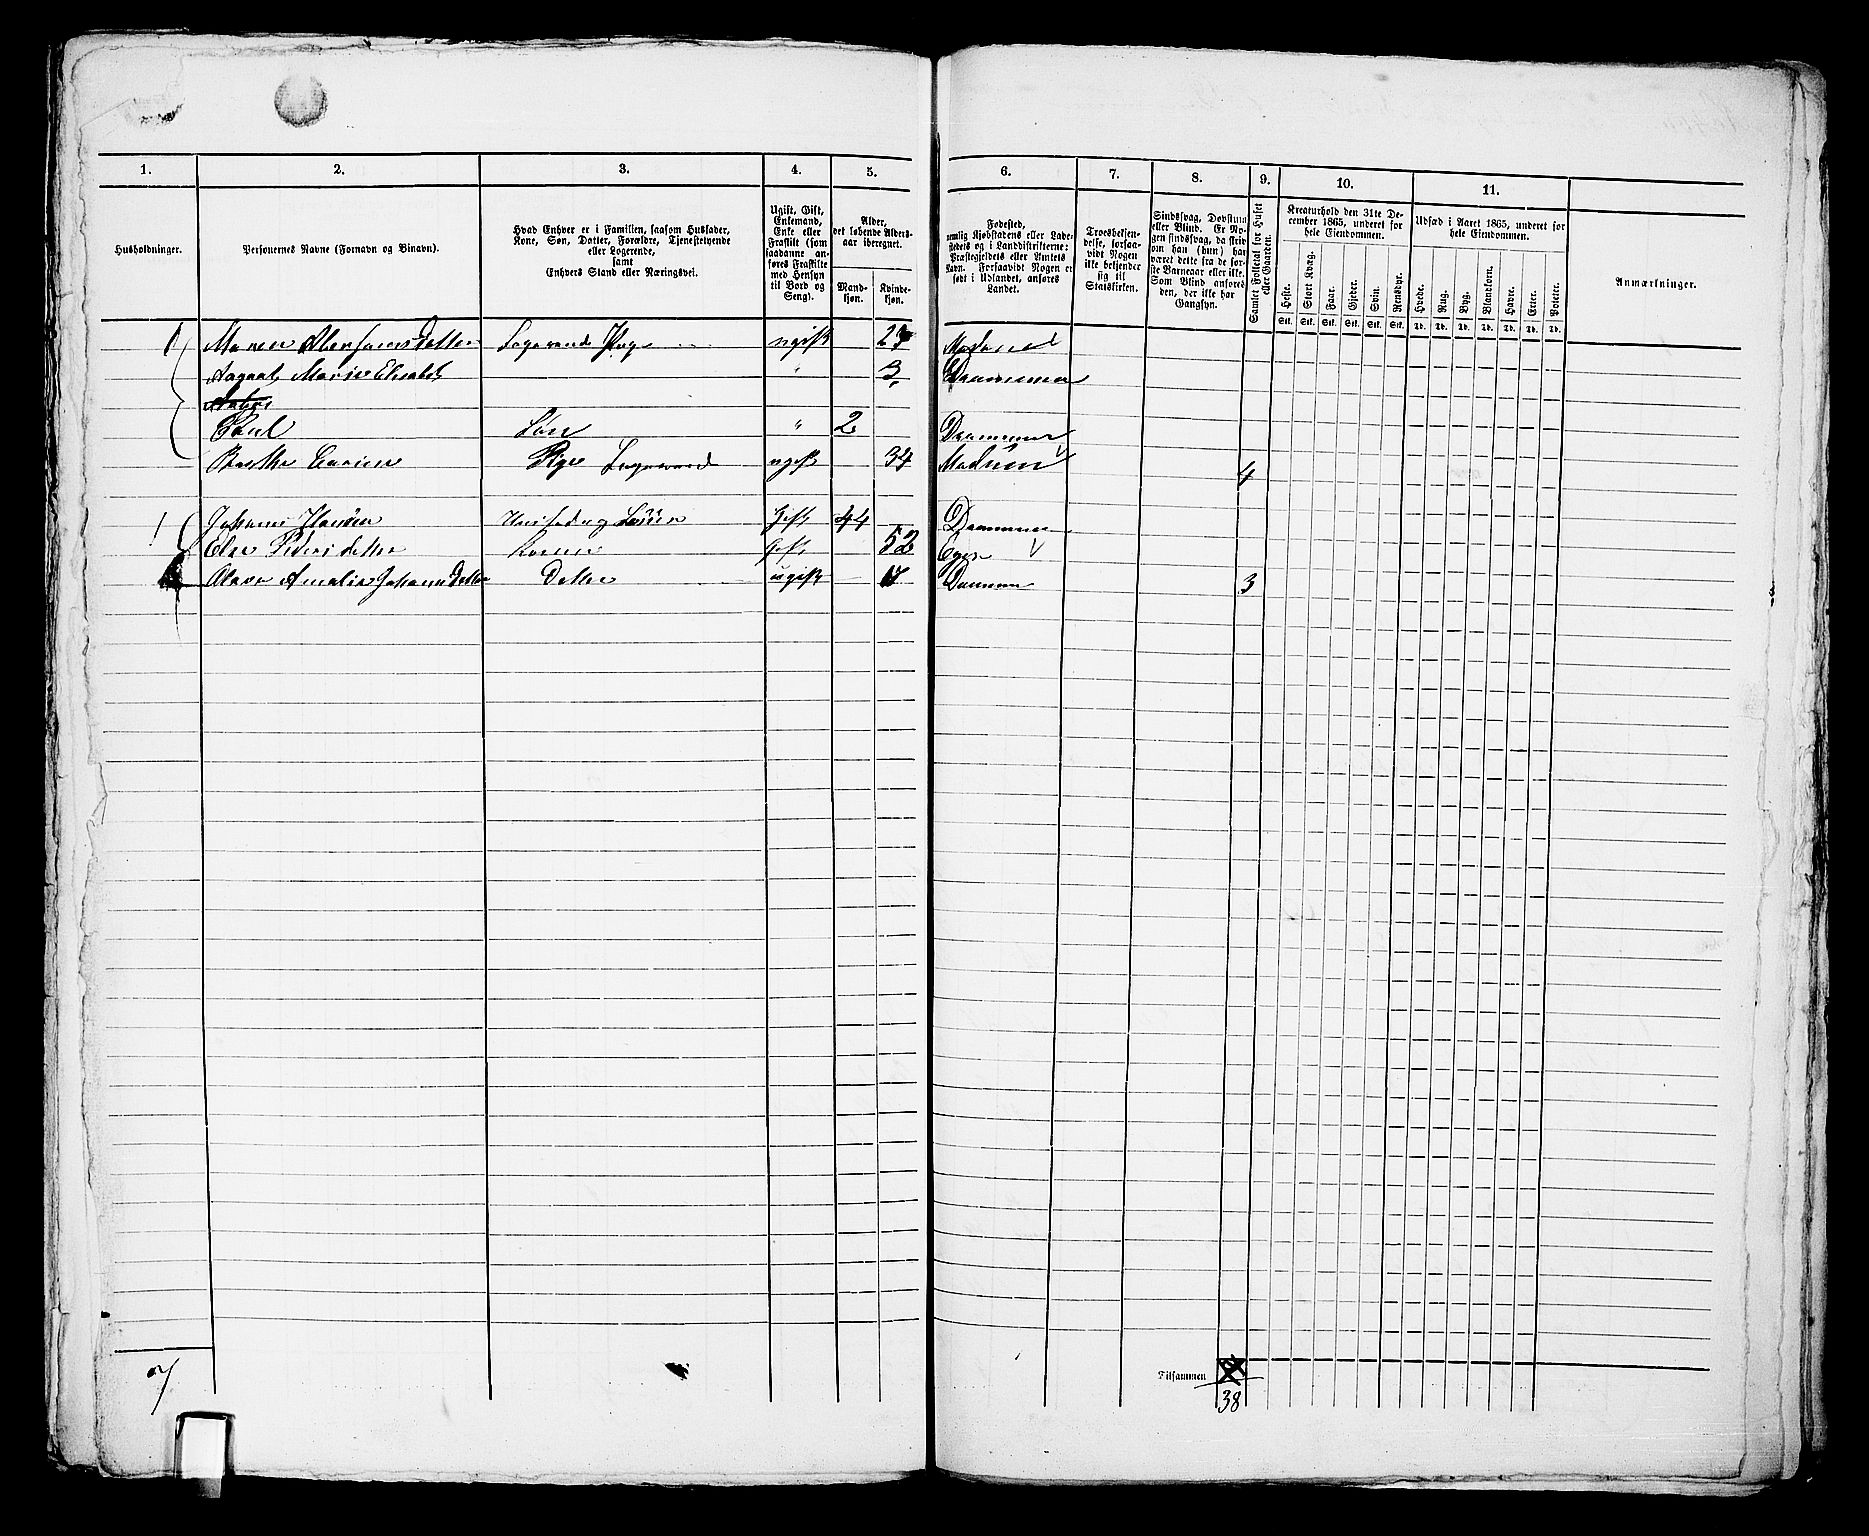 1. 2. 3. 4. 5. 6. 7. 8. 9. 10. 11.
Husholdninger.
Personernes Navne (Fornavn og Binavn).
Hvad Enhver er i Familien, saasom Husfader,
Kone, Søn, Datter, Forældre, Tjenestetyende
eller Logerende,
samt
Enhvers Stand eller Næringsvei.
Ugift, Gift,
Enkemand,
Enke eller
Fraskilt (som
saadanne an-
føres Fraskilte
med Hensyn
til Bord og
Seng).
Alder,
det løbende Alders-
aar iberegnet.
Mand-
kjøn.
Kvinde-
kjøn.
Fødested,
nemlig Kjøbstadens eller Lade-
stedets og i Landdistrikterne:
Præstegjeldets eller Amtets
Navn. Forsaavidt Nogen er
født i Udlandet, anføres
Landet.
Troesbekjen-
delse, forsaa-
vidt Nogen
ikke bekjender
sig til
Statskirken.
Sindssvag, Døvstum
eller Blind. Er No-
gen sindssvag, da skriv
om han (hun) har
været dette fra de før-
ste Barneaar eller ikke.
Som Blind anføres
den, der ikke har
Gangsyn.
Samlet Folketal for Huset
eller Gaarden.
Kreaturhold den 31te De-
cember 1865, underet for
hele Eiendommen.
Heste. Stort Kvæg. Faar. Gjeder. Svin. Rensdyr.
Stk. Stk. Stk. Stk. Stk. Stk.
Udsæd i Aaret 1865, underet for
hele Eiendommen.
Hvede. Rug. Byg. Blandkorn. Havre. Erter. Poteter.
Td. Td. Td. Td. Td. Td. Td.
Anmærkninger.
Maren ugift
Marie Elisabet " 3
Søn " 2 Drammen
Berthe Pige ugift 34 Modum 4
Johannes Hansen Gift 44 Drammen
Else Pedersdatter Gift 52 Eger
Amalie Datter ugift Drammen 3
7
Tilsammen
38